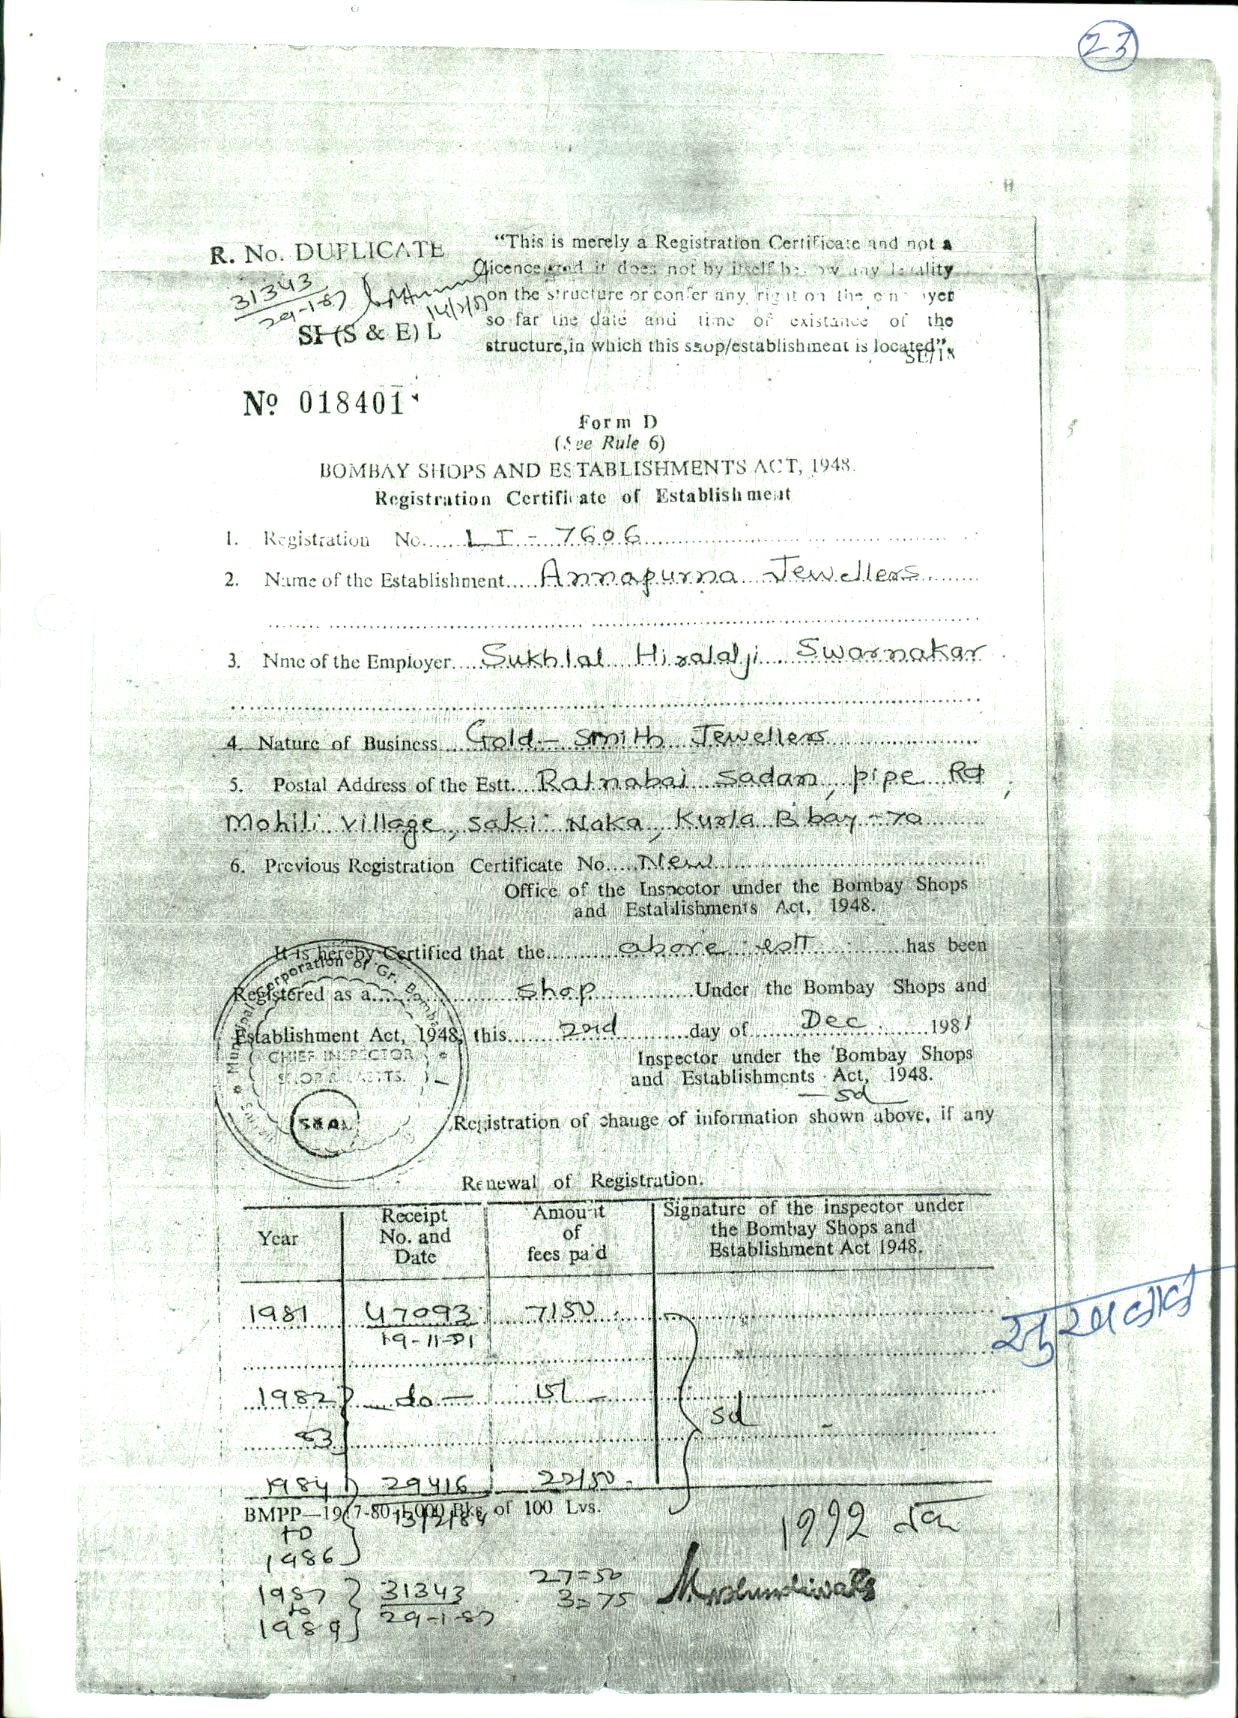 23
R. No. DUPLICATE
31343
29-1-87
14/2/87
SI (S & E) L
"This is merely a Registration Certificate and not a
licence and it does not by itself any legality
on the structure or confer any right on the
so far the date and time of existance of the
structure,in which this ssop/establishment is located".
SE/18
Nº 018401
Form D
(See Rule 6)
BOMBAY SHOPS AND ESTABLISHMENTS ACT, 1948.
Registration Certificate of Establishment
1. Registration No. LI - 7606
2. Name of the Establishment Annapurna Jewellers
3. Nme of the Employer Sukhlal Hiralalji Swarnakar
4. Nature of Business Gold-smith Jewellers
5. Postal Address of the Estt. Ratnabai sadan, pipe Rd,
Mohili village, saki Naka, Kurla B'bay-70
6. Previous Registration Certificate No. New
Office of the Inspector under the Bombay Shops
and Establishments Act, 1948.
It is hereby Certified that the above estt has been
Registered as a shop Under the Bombay Shops and
Establishment Act, 1948, this 22nd day of Dec 1981
Municipal Corporation of Gr. Bombay
CHIEF INSPECTOR
SHOP & ESTTS.
SEAL
Inspector under the Bombay Shops
and Establishments Act, 1948.
— sd —
Registration of change of information shown above, if any
Renewal of Registration.
Year
Receipt No. and Date
Amount of fees paid
Signature of the inspector under the Bombay Shops and Establishment Act 1948.
1981 47093 7/50
19-11-81
1982 — do — 15/-
83
sd
1984 29416 22/50
BMPP—1917-80-1,000 Bks of 100 Lvs.
13/2/84
to
1986
1992 तक
1987 31343 27=50
to 29-1-87 3=75
1989
सुखलाल